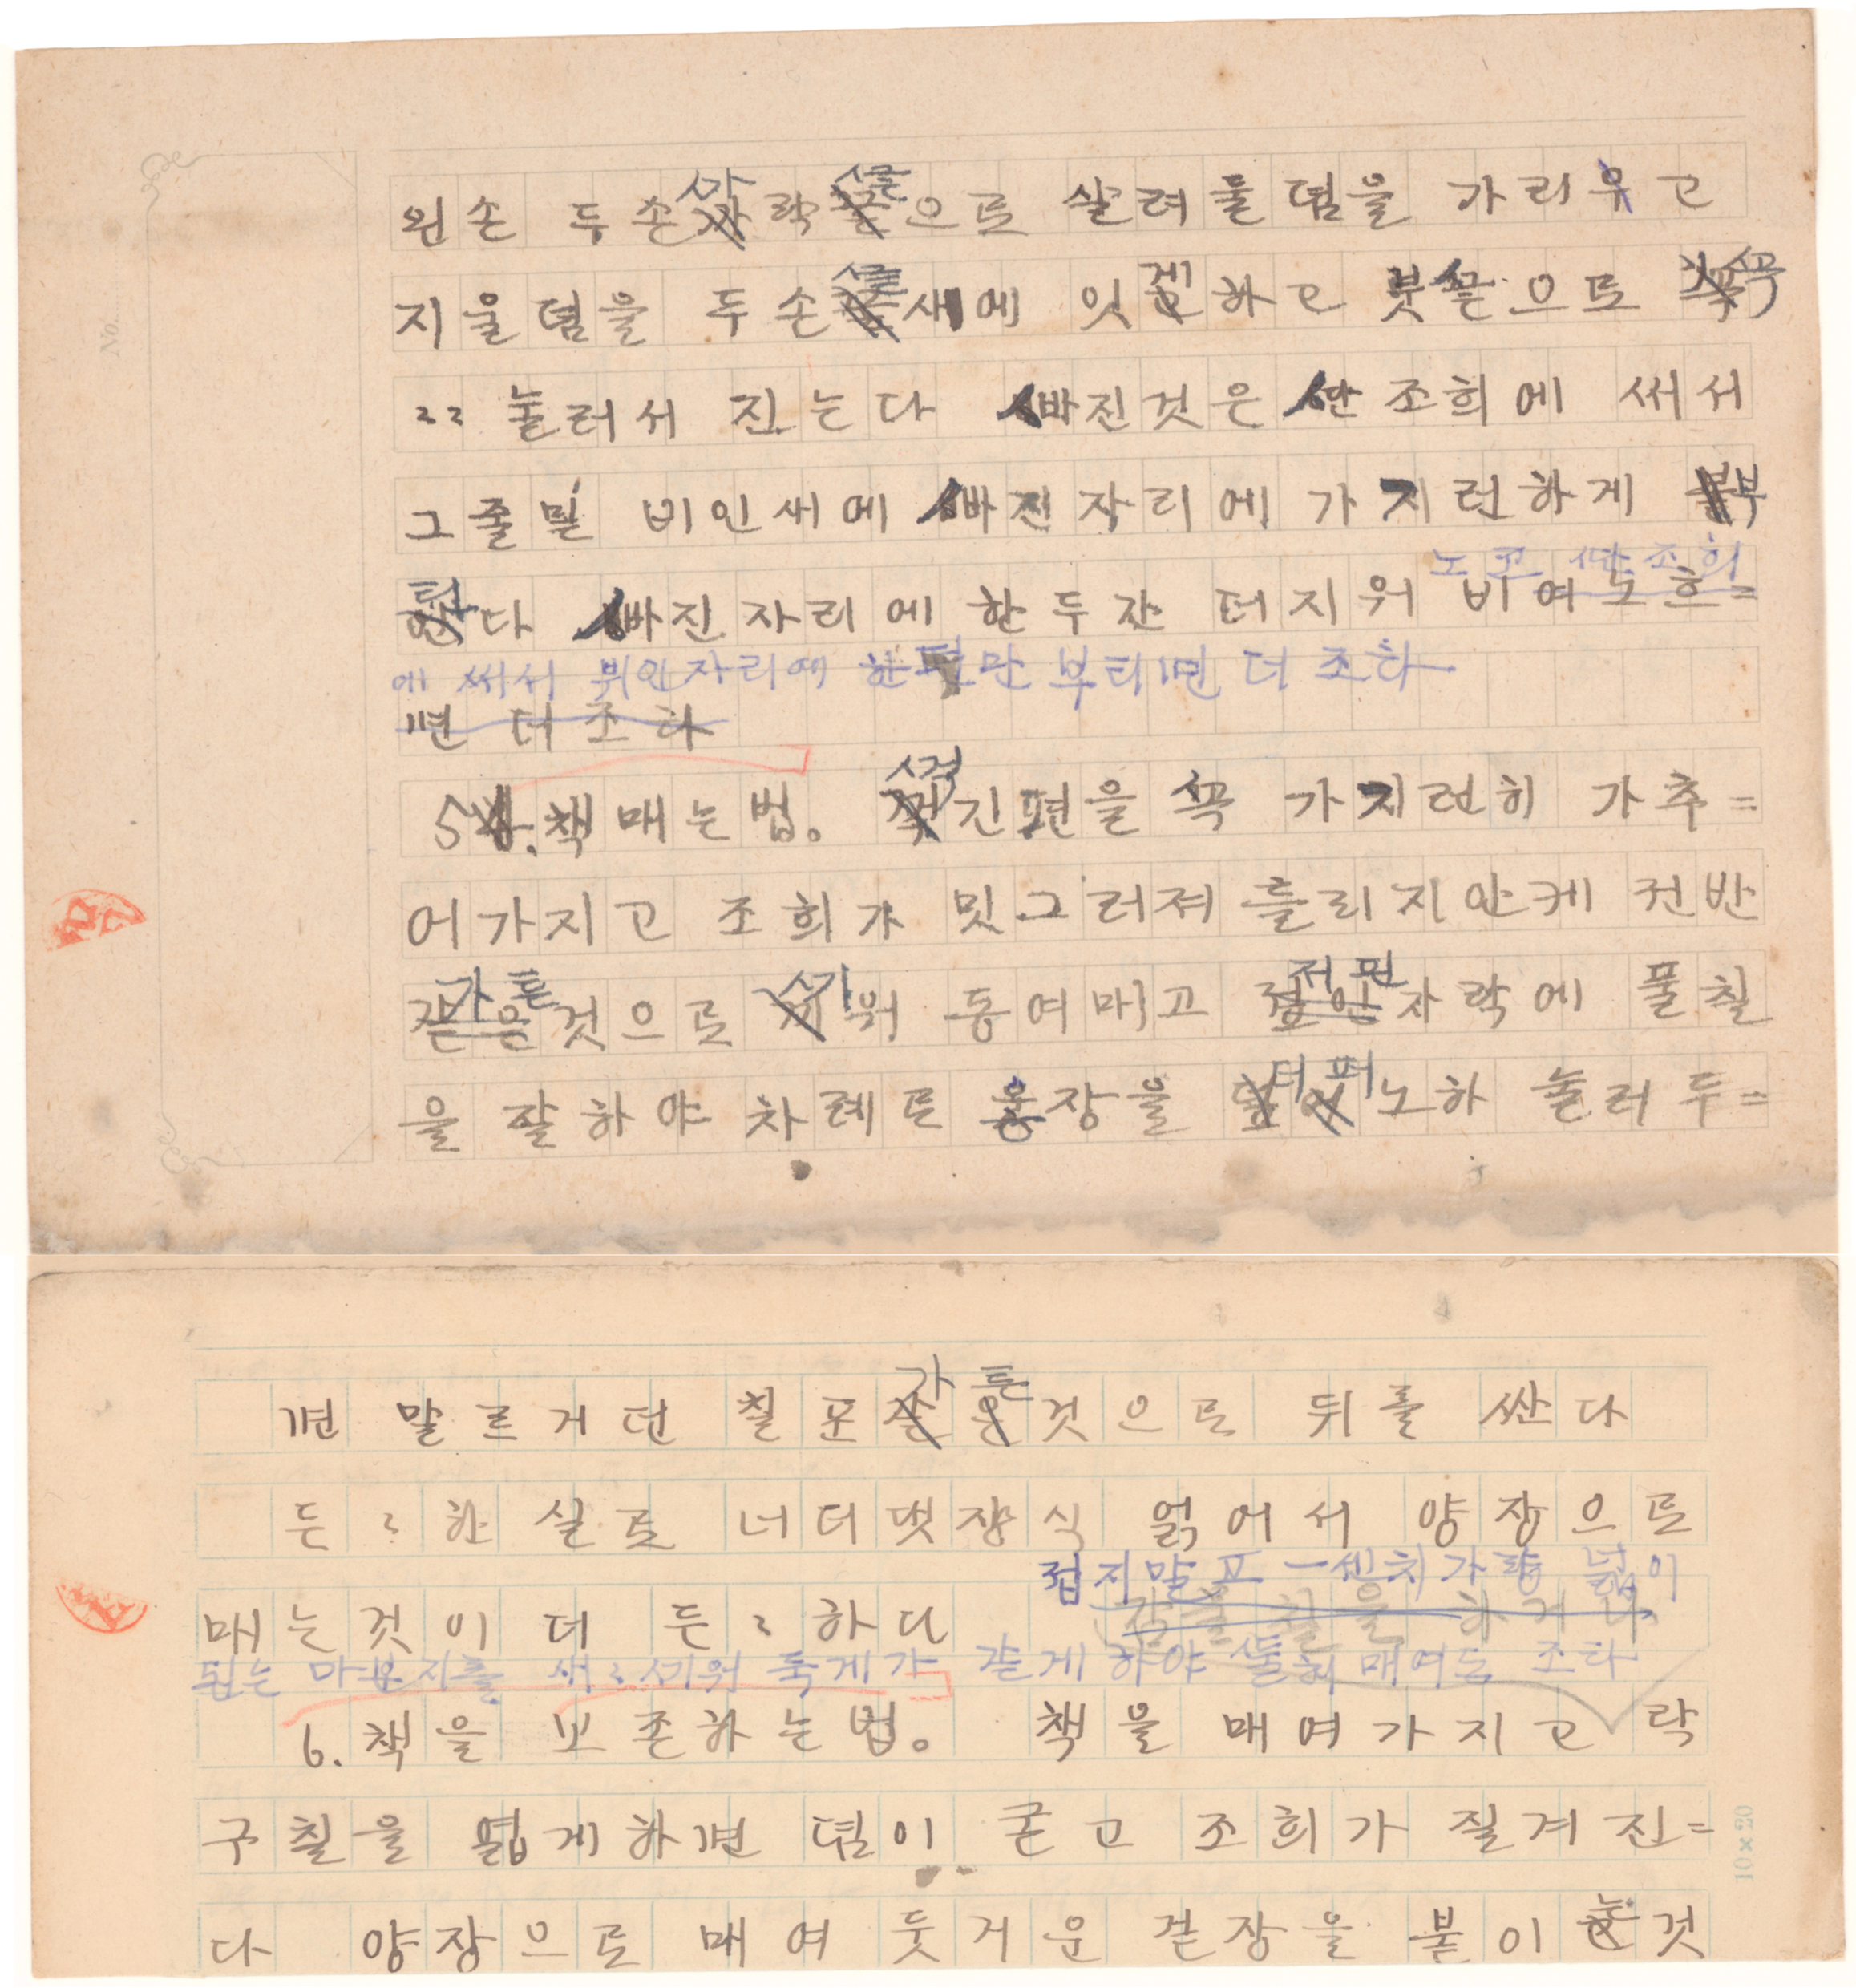 왼손 두손ᄭᅡ락ᄭᅳᆮ으로 살려둘뎜을 가리우고
지울뎜을 두손ᄭᅳᆮ새에 잇게하고 붓ᄭᅳᆮ으로 ᄭᅩᆨ
〃 눌러서 진는다 ᄲᅡ진것은 ᄯᅡᆫ조희에 써서
그줄밑 비인새에 ᄲᅡ진자리에 가지런하게 부
틴다 ᄲᅡ진자리에 한두잔 더지워 비여노흐=
노코 ᄯᅡᆫ조희
에 써서 뷔인자리에 한편만 부티면 더 조하
면 더 조하
5. 책매는법。 ᄭᅥᆨ긴편을 ᄭᅩᆨ 가지런히 가추=
어가지고 조희가 밋그러져 틀리지안케 전반
가튼것으로 ᄭᅵ워 동여매고 저민자락에 풀칠
을 잘하야 차례로 웅장을 더퍼노하 눌러두=
면 말르거던 칠포가튼것으로 뒤를 싼다
든〃한 실로 너더댓장식 얽어서 양장으로
매는것이 더 든〃하다
접지말고 一센치가량 넓이
되는 마분지를 새〃ᄭᅵ워 둑게가 같게하야 매여도 조타
6. 책을 보존하는법。 책을 매여가지고 락
구칠을 엷게하면 뎜이 굳고 조희가 질겨진=
다 양장으로 매여 둣거운 겉장을 붙이는것
10×20
No.